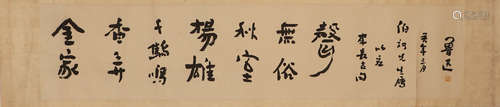 金家
香弄
千輪鳴
楊雄
秋室
無俗
聲
李長吉句
以應
伯訶先生屬
亥年三月
魯迅